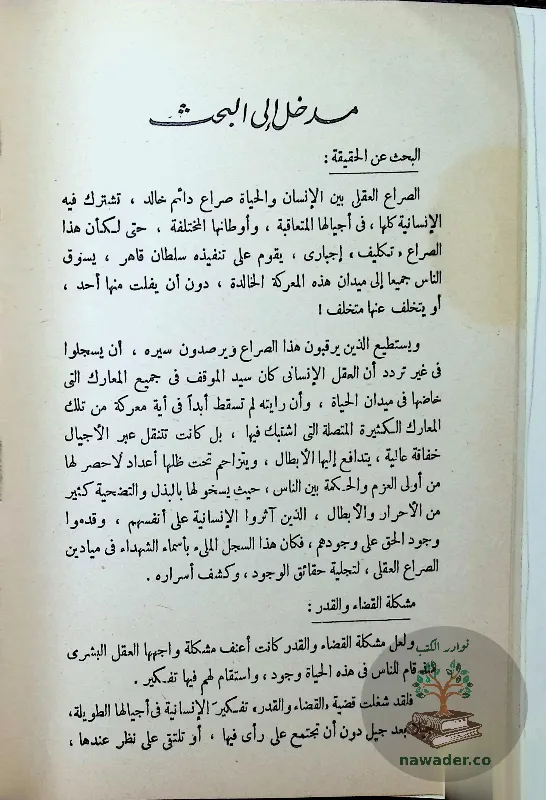 مدخل إلى البحث
البحث عن الحقيقة :
الصراع العقلى بين الإنسان والحياة صراع دائم خالد ، تشترك فيه
الإنسانية كلها ، فى أجيالها المتعاقبة ، وأوطانها المختلفة ، حتى لكأن هذا
الصراع « تكليف » إجبارى ، يقوم على تنفيذه سلطان قاهر ، يسوق
الناس جميعا إلى ميدان هذه المعركة الخالدة ، دون أن يفلت منها أحد ،
أو يتخلف عنها متخلف !
ويستطيع الذين يرقبون هذا الصراع ويرصدون سيره ، أن يسجلوا
فى غير تردد أن العقل الإنسانى كان سيد الموقف فى جميع المعارك التى
خاضها فى ميدان الحياة ، وأن رايته لم تسقط أبداً فى أية معركة من تلك
المعارك الكثيرة المتصلة التى اشتبك فيها ، بل كانت تتنقل عبر الأجيال
خفاقة عالية ، يتدافع إليها الأبطال ، ويتزاحم تحت ظلها أعداد لاحصر لها
من أولى العزم والحكمة بين الناس ، حيث يسخو لها بالبذل والتضحية كثير
من الأحرار والأبطال ، الذين آثروا الإنسانية على أنفسهم ، وقدموا
وجود الحق على وجودهم ، فكان هذا السجل الملىء بأسماء الشهداء فى ميادين
الصراع العقلى ، لتجلية حقائق الوجود ، وكشف أسراره .
مشكلة القضاء والقدر :
ولعل مشكلة القضاء والقدر كانت أعنف مشكلة واجهها العقل البشرى
منذ قام للناس فى هذه الحياة وجود ، واستقام لهم فيها تفكير .
فلقد شغلت قضية «القضاء والقدر» تفكير الإنسانية فى أجيالها الطويلة،
بعد جيل دون أن تجتمع على رأى فيها ، أو تلتقى على نظر عندها ،
نوادر الكتب
nawader.co